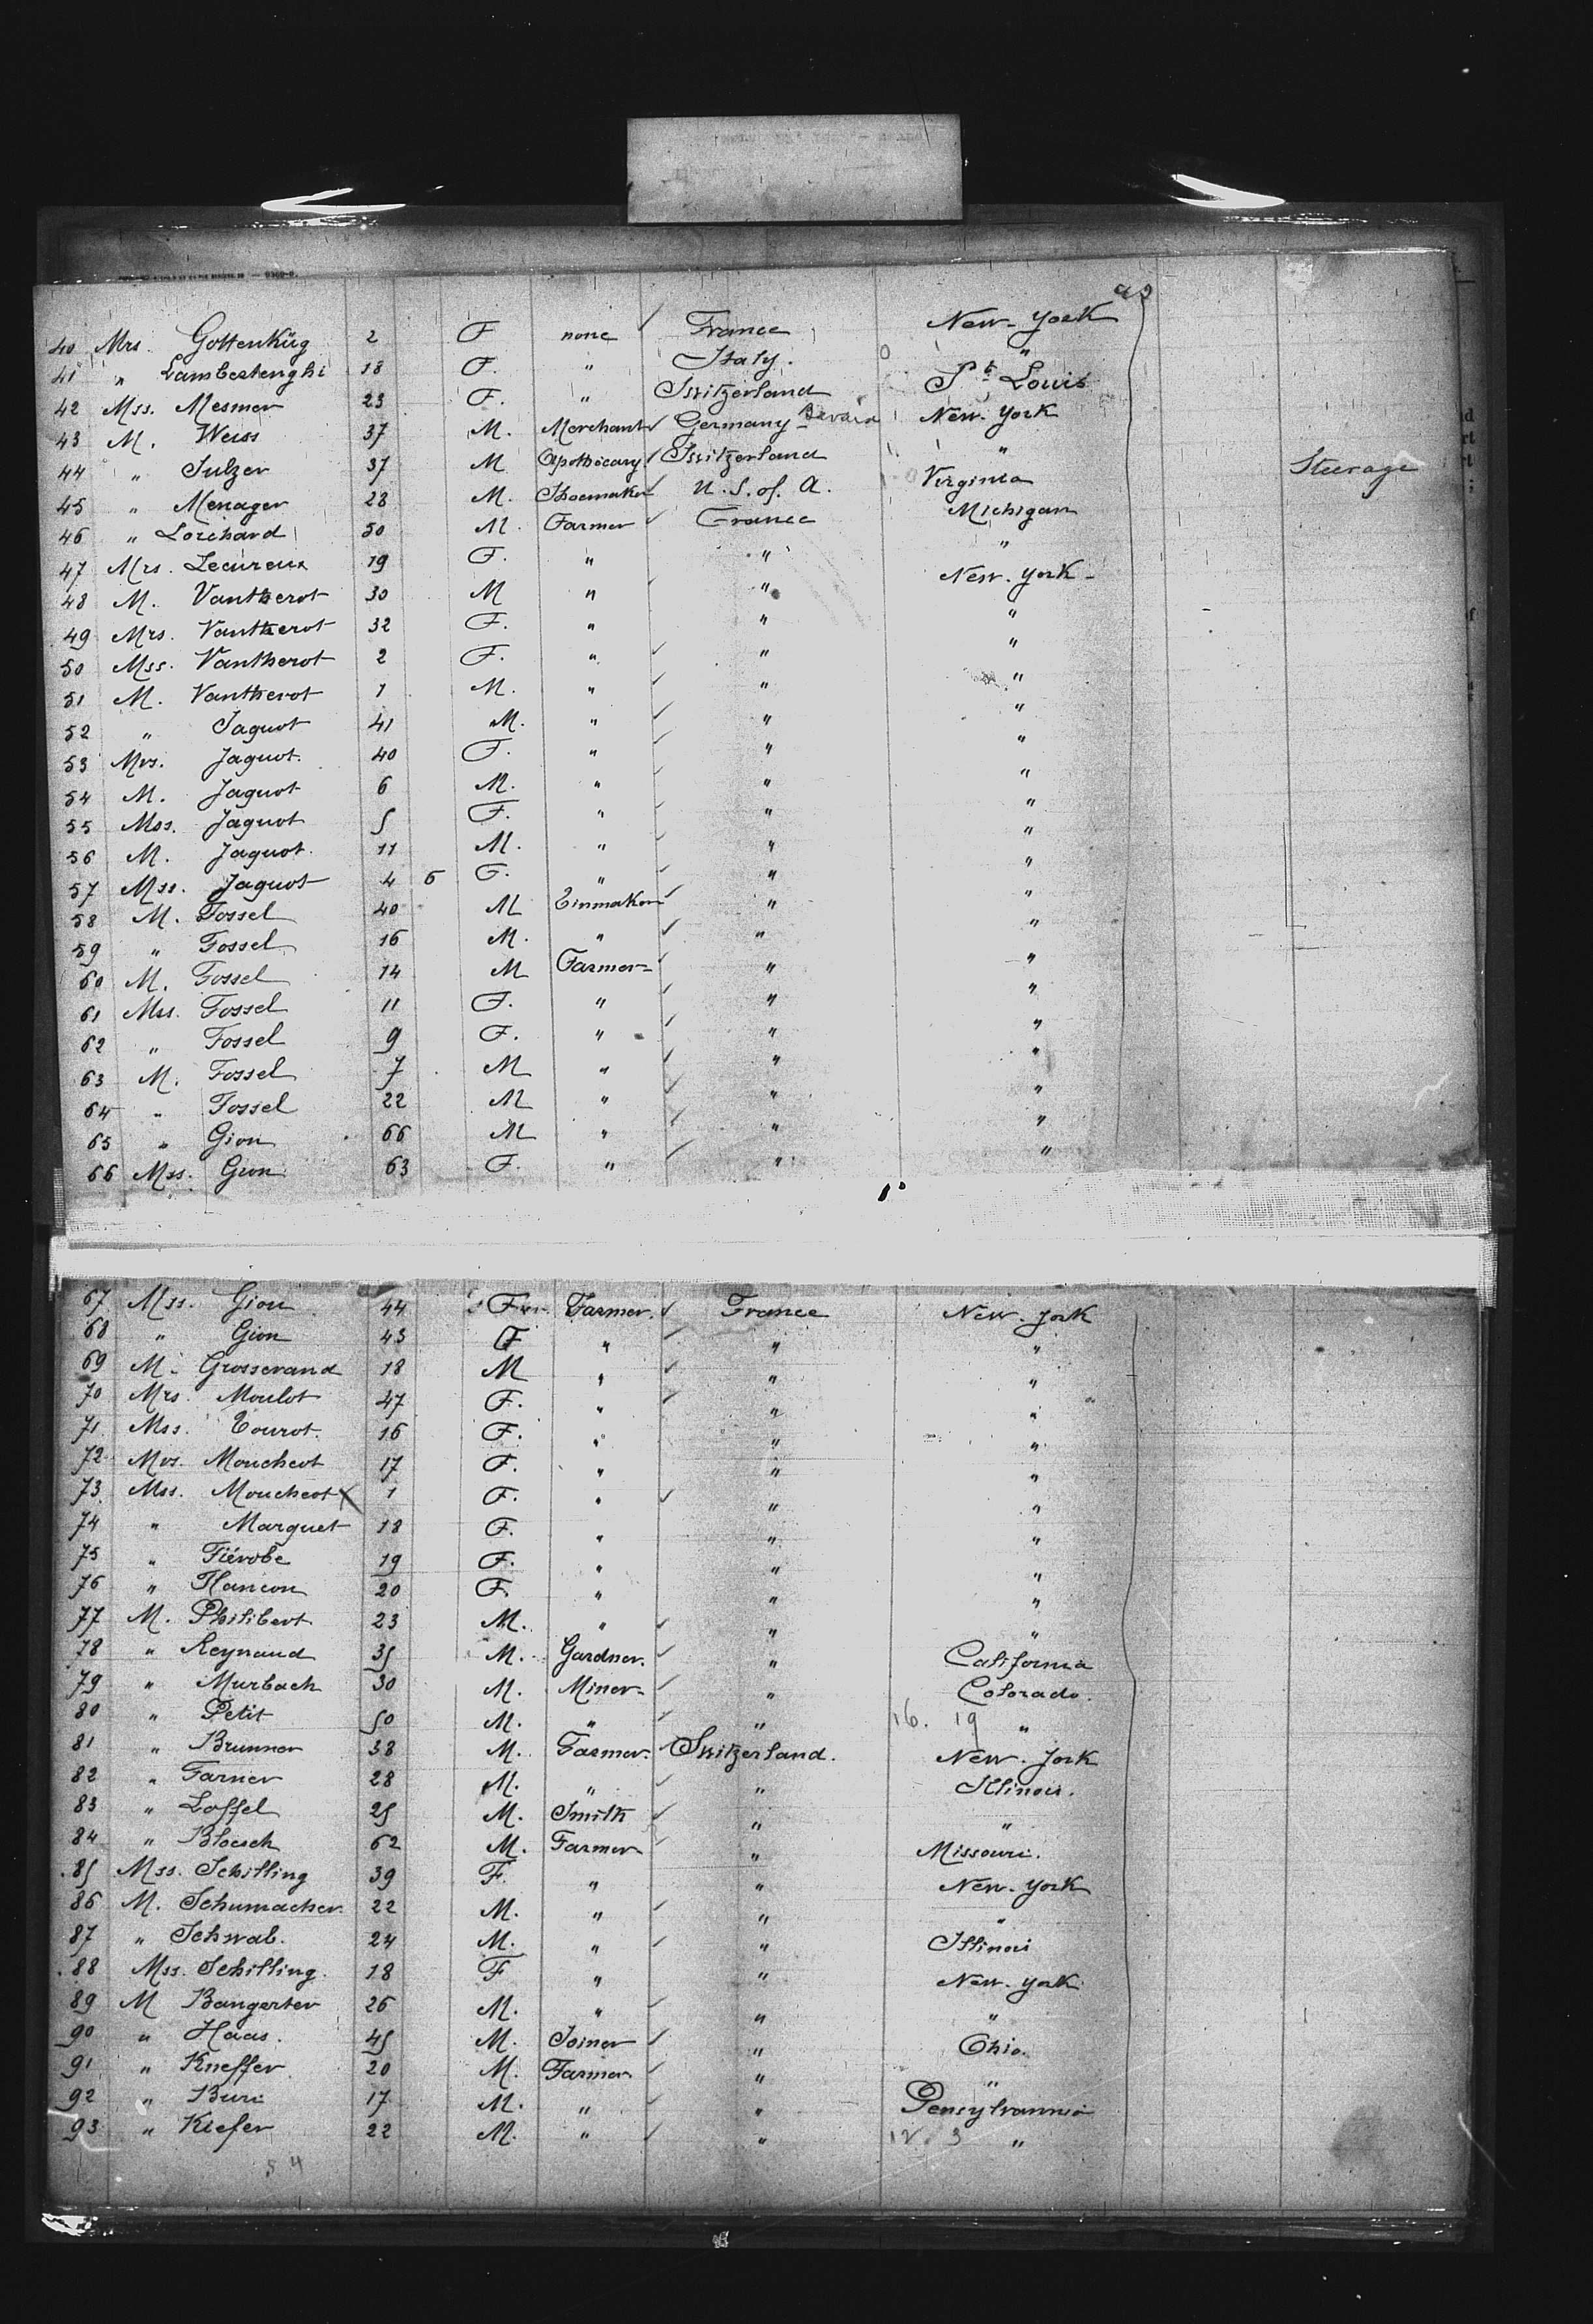 40 Mrs. Gottenkieg 2 F none France New-York
41 " Lambertenghi 18 F. " Italy. "
42 Mss. Mesmer 23 F. " Switzerland St. Louis
43 M. Weiss 37 M. Merchant Germany - Bavaria New-York
44 " Sulzer 37 M Apothecary Switzerland " Steerage
45 " Menager 28 M. Shoemaker U. S. of. A. Virginia
46 " Lorchard 50 M. Farmer France Michigan
47 Mrs. Lecureux 19 F. " " "
48 M. Vantherot 30 M " " New-York
49 Mrs. Vantherot 32 F. " " "
50 Mss. Vantherot 2 F. " " "
51 M. Vantherot 1 M. " " "
52 " Jaquot 41 M. " " "
53 Mrs. Jaquot. 40 F. " " "
54 M. Jaquot 6 M. " " "
55 Mss. Jaquot 5 F. " " "
56 M. Jaquot. 11 M. " " "
57 Mss. Jaquot 4 6 F. " " "
58 M. Fossel 40 M Tinmaker " "
59 " Fossel 16 M. " " "
60 M. Fossel 14 M Farmer " "
61 Mss. Fossel 11 F. " " "
62 " Fossel 9 F. " " "
63 M. Fossel 7 M " " "
64 " Fossel 22 M " " "
65 " Gion 66 M " " "
66 Mss. Gion 63 F. " " "
67 Mss. Gion 44 F Farmer. France New-York
68 " Gion 43 F " " "
69 M. Grosserand 18 M " " "
70 Mrs. Moulot 47 F. " " "
71 Mss. Tourot. 16 F. " " "
72 Mrs. Moucheot 17 F. " " "
73 Mss. Moucheot X 1 F. " " "
74 " Marquet 18 F. " " "
75 " Fiérobe 19 F. " " "
76 " Hancon 20 F. " " "
77 M. Philibert 23 M. " " "
78 " Reynaud 35 M. Gardner. " California
79 " Murbach 30 M. Miner " Colorado.
80 " Petit 50 M. " " 16. 19 "
81 " Brunner 38 M. Farmer. Switzerland. New-York
82 " Farner 28 M. " " Illinois.
83 " Loffel 25 M. Smith " "
84 " Bloesch 62 M. Farmer " Missouri.
85 Mss. Schilling 39 F. " " New-York
86 M. Schumacher 22 M. " " "
87 " Schwab. 24 M. " " Illinois
88 Mss. Schilling. 18 F " " New-York
89 M Bangerter 26 M. " " "
90 " Haas. 45 M. Joiner " Ohio.
91 " Kneffer 20 M. Farmer " "
92 " Buri 17 M. " " Pensylvannia
93 " Kiefer 22 M. " " 12. 3 "
54